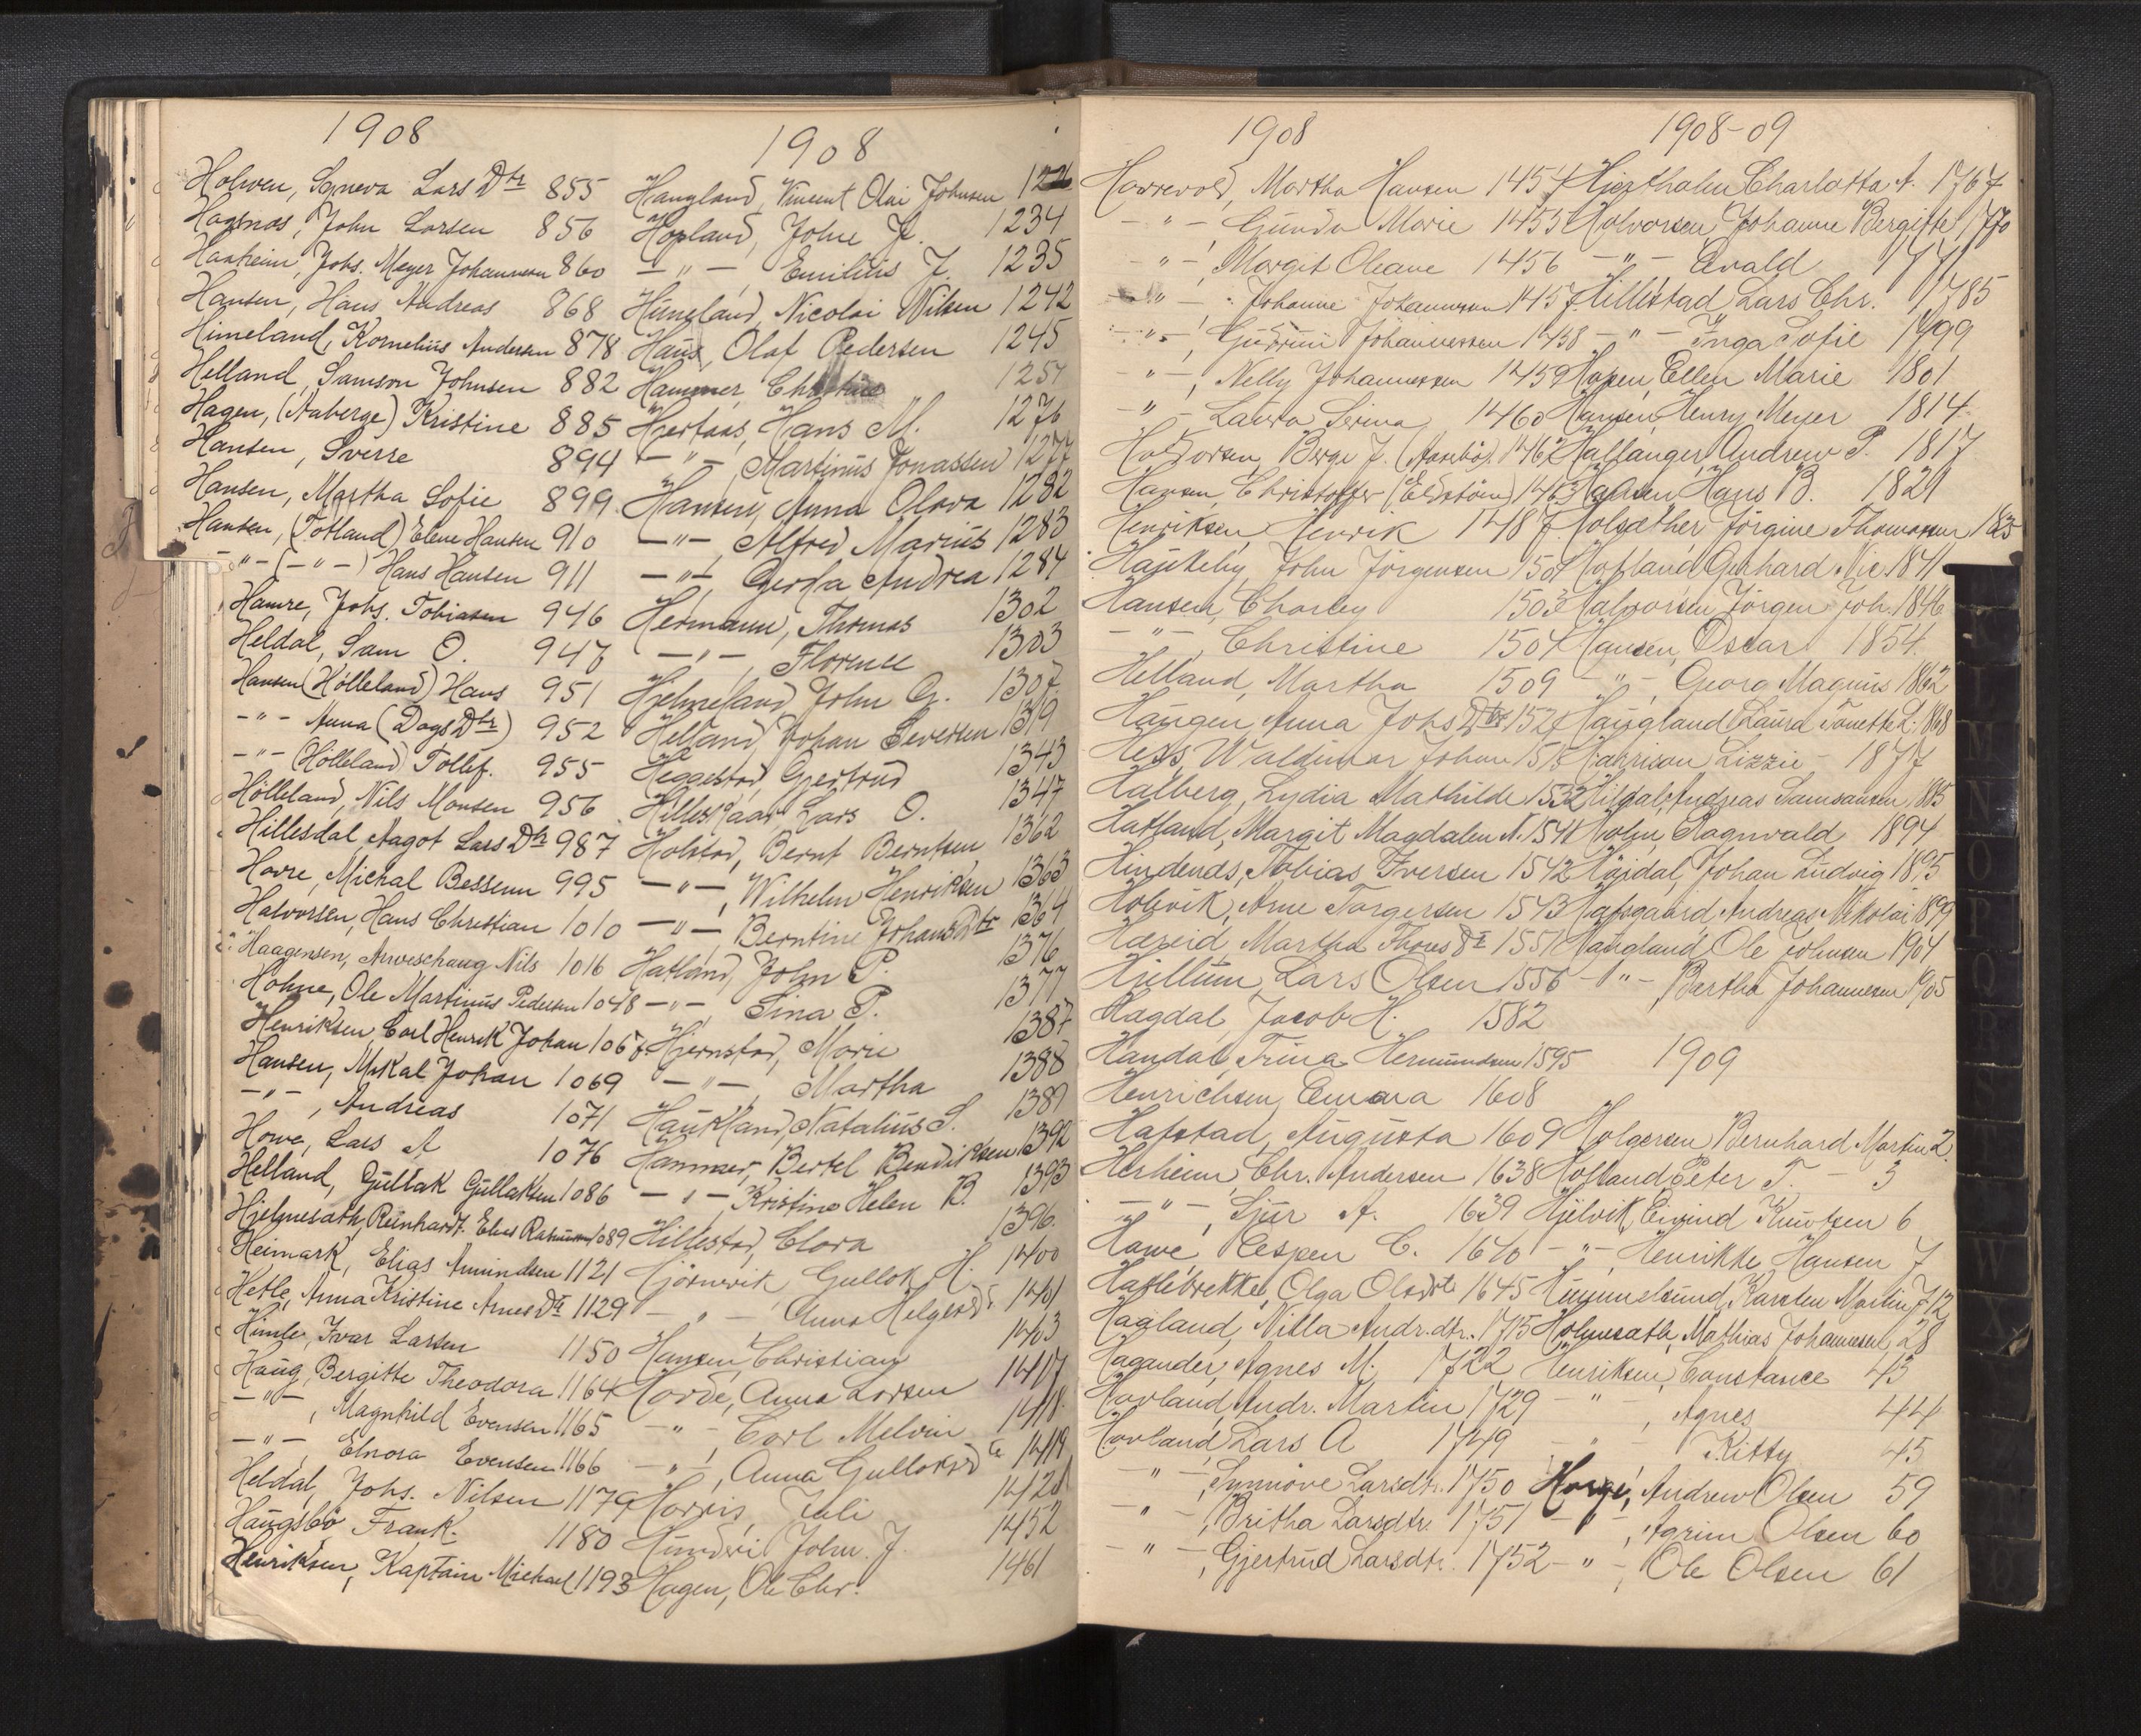 1908
Holven, Synneva Lars Dtr 855
Hagenæs, John Larsen 856
Hanheim, Johs. Meyer Johannesen 860
Hansen, Hans Andreas 868
Himeland, Kornelius Andersen 878
Helland, Samson Johnsen 882
Hagen, (Aaberge) Kristine 885
Hansen, Sverre 894
Hansen, Martha Sofie 899
Hansen, (Totland) Elene Hansen 910
-"- (-"-) Hans Hansen 911
Hamre, Johs. Tobiasen 946
Heldal, Sam O. 947
Hansen (Hölleland) Hans 951
-"- Anna (Dags Dtr) 952
-"- (Hölleland) Tollef. 955
Hölleland, Nils Monsen 956
Hillesdal, Aagot Lars Dtr 987
Hovre, Michal Bessenn 995
Halvorsen, Hans Christian 1010
Haagensen, Nils 1016
Hohne, Ole Martinus Pedersen 1048
Henriksen, Carl Henrik Johan 1067
Hansen, Mikal Johan 1069
-"-, Andreas 1071
Howe, Lars A 1076
Helland, Gullak Gullaksen 1086
Hjelmesath, Reinhardt Elias 1089
Heimark, Elias Amundsen 1121
Hetle, Anna Kristine Arnes Dtr 1129
Himle, Ivar Larsen 1150
Haug, Bergitte Theodora 1164
-"-, Magnhild Evensen 1165
-"- Elnora Evensen 1166
Heldal, Johs. Nilsen 1179
Haugsbö Frank 1180
Henriksen, Kaptain Michael 1193
1908
Haugland, Vincent Olai Johnsen
Hopland, Johe J. 1234
-"-, Emilius J. 1235
Huneland, Nicolai Nilsen 1242
Haus, Olaf Pedersen 1245
Hammer, Christine 1257
Hjertaas, Hans M. 1276
-"-, Martinus Jonassen 1277
Hansen, Anna Olava 1282
-"-, Alfred Marius 1283
-"-, Gerda Andrea 1284
Hermann, Thomas 1302
-"-, Florence 1303
Hjelmeland, John G. 1307
Helland, Johan Seversen 1319
Heggestad, Gjertrud 1343
Hilleskaar Lars O. 1347
Holstad, Bernt Berntsen 1362
-"-, Wilhelm Henriksen 1363
-"-, Berntine Johans Dtr 1364
Hatland, John P. 1376
-"-, Sina P. 1377
Hjernstad, Marie 1387
-"-, Martha 1388
Haukland, Natalius S. 1389
Hammer, Bertel Bendiksen 1392
-"-, Kristine Helen B. 1393
Hillestad, Clara 1396
Hjörnevik Gullak H. 1400
-"- Anna Helges Dtr 1401
Hansen, Christian 1403
Horde, Anna Larsen 1417
-"-, Carl Melvin 1418
-"-, Anna Gullaksd 1419
Horris, Juli 1420
Hundvei John J. 1452
Hagen, Ole Chr. 1461
1908
Havrevold, Martha Hansen 1454
-"-, Gunda Marie 1455
-"-, Margit Oleane 1456
-"-, Johanne Johannessen 1457
-"-, Gudrun Johannessen 1458
-"-, Nelly Johannessen 1459
-"-, Laura Serina 1460
Haldorsen, Berge J. (Aasebö) 1462
Hansen, Christoffer (Eidstöen) 1463
Henriksen, Henrik 1487
Haukeby, John Jörgensen 1501
Hansen, Charley 1503
-"-, Christine 1504
Helland, Martha 1509
Haugen, Anna Johs Dtr 1524
Hess, Waldimar Johan
Halberg, Lydia Mathilde 1532
Hatland, Margit Magdalen N. 1541
Hindenæs, Tobias Iversen 1542
Holsvik, Arne Torgersen 1543
Hæreid, Martha Thoms Dtr 1551
Hjellum, Lars Olsen 1556
Hagdal, Jacob H. 1582
Handal, Trina Hermundsen 1595
Henrichsen, Emma 1608
Hafstad, Augusta 1609
Herheim, Chr. Andersen 1638
-"-, Sjur A. 1639
Hawe, Cespen C. 1640
Haslebrekke, Olga Olsdtr 1645
Hagland, Nilla Andr.dtr. 1715
Hagander, Agnes M. 1722
Hovland, Andr. Martin 1729
Hovland Lars A 1749
-"-, Synnöve Larsdtr. 1750
-"-, Britha Larsdtr. 1751
-"-, Gjertrud Larsdtr. 1752
1908-09
Hjerthalen Charlotta A. 1767
Halvorsen, Johanne Bergitte 1770
-"- Evald 1771
Hillestad, Lars Chr. 1785
-"- Inga Sofie 1799
Hopen, Ellen Marie 1801
Hansen, Henry Meyer 1814
Hallanger, Andrew P. 1817
Hansen, Hans B. 1821
Holsæther Jörgine Thomassen
Hofland, Gerhard Nic. 1841
Halvorsen, Jörgen Joh. 1846
Hansen, Oscar 1854
-"-, Georg Magnus 1862
Haugland, Laura Tonette L. 1868
Harrison Lizzie - 1877
Hildal, Andreas Samsonsen 1885
Holm, Ragnvald 1894
Höjdal, Johan Ludvig 1895
Hafsgaard, Andreas Nikolai 1899
Haugland, Ole Johnsen 1904
-"-, Bertha Johannesen 1905
1909
Holgersen, Bernhard Martin 2.
Hofland Peter T. - 3
Hjelvik, Eivind Knutsen 6
-"-, Henrikke Hansen 7
Hummelsund, Karsten Martin J 12
Holmesath, Mathias Johannesen, 28
Henriksen, Constance 43
-"-, Agnes 44
-"- Kitty 45
Horge, Andrew Olsen 59
-"-, Agrim Olsen 60
-"-, Ole Olsen 61
M
N
O
P
Q
S
W
X